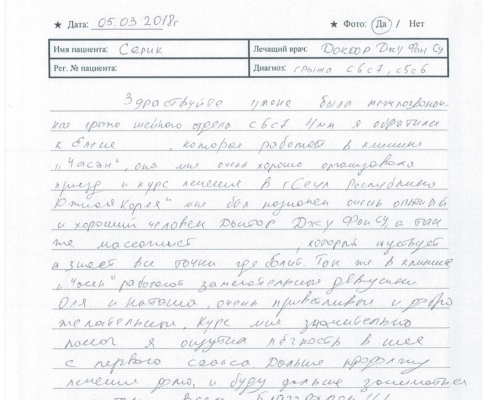 ★ Дата: 05.03 2018г ★ Фото: Да / Нет
Имя пациента: Серик Лечащий врач: Доктор Джу Фан Су
Рег. № пациента: Диагноз: грыжа с6с7, с5с6
Здраствуйте у меня была межпозвоноч
ная грыжа шейного отдела с6с7 4мм я обратился
к Елене , которая работает в клинике
„Часэн", она мне очень хорошо организовала
приезд и курс лечения в г Сеул Республика
Южная Корея" мне был назначен очень
и хороший человек Доктор Джу Фан Су, а так
же массажист , который чуствует
и знает все точки где болит. Так же в клинике
„Часэн" работают замечательные девушки
Оля и Наташа, очень приветливые и добро
желательные. Курс мне значительно
помог я ощутил лёгкость в шее
с первого сеанса Дальше продолжу
лечение дома, и буду дальше заниматься